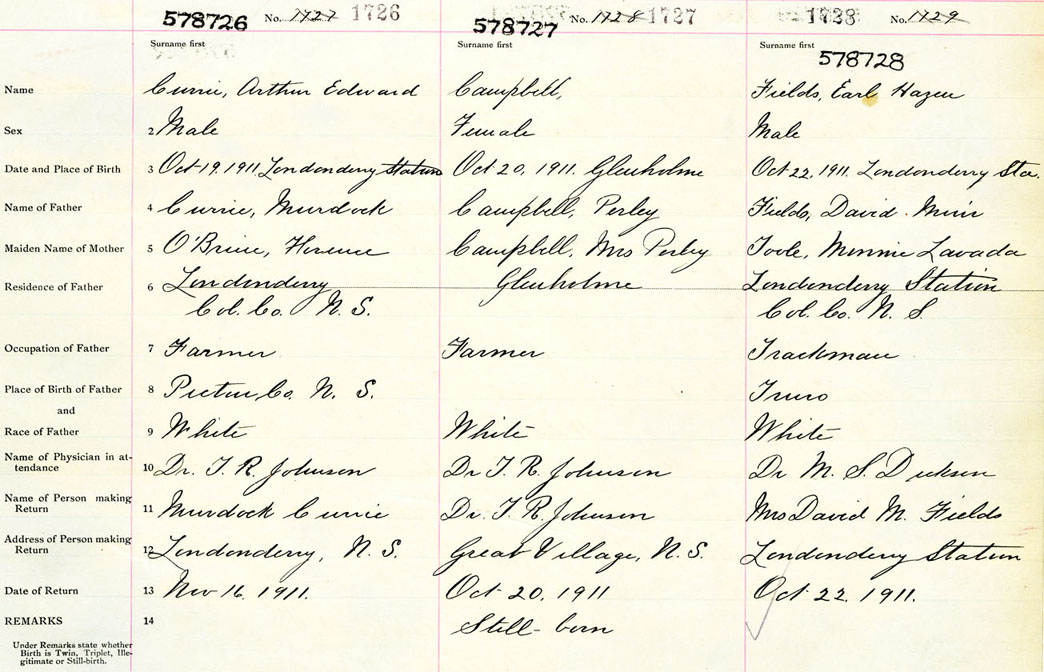 578726 No. 1727 1726 578727 No. 1728 1727 1728 No. 1729
Surname first Surname first Surname first
578728
Name Currie, Arthur Edward Campbell, Fields, Earl Hazen
Sex 2 Male Female Male
Date and Place of Birth 3 Oct 19, 1911, Londonderry Station Oct 20, 1911. Glenholme Oct 22, 1911. Londonderry Sta.
Name of Father 4 Currie, Murdock Campbell, Perley Fields, David Muir
Maiden Name of Mother 5 O'Brine, Florence Campbell, Mrs Perley Toole, Minnie Lavada
Residence of Father 6 Londonderry Glenholme Londonderry Station
Col. Co. N. S. Col. Co. N. S
Occupation of Father 7 Farmer Farmer Trackman
Place of Birth of Father 8 Pictou, Co. N. S. Truro
and
Race of Father 9 White White White
Name of Physician in at-
tendance 10 Dr. T. R. Johnson Dr T. R. Johnson Dr M. S. Dickson
Name of Person making
Return 11 Murdock Currie Dr. T. R. Johnson Mrs David M. Fields
Address of Person making
Return 12 Londonderry, N. S. Great Village, N. S. Londonderry Station
Date of Return 13 Nov 16, 1911. Oct 20, 1911 Oct 22, 1911.
REMARKS 14 Still-born
Under Remarks state whether
Birth is Twin, Triplet, Ille-
gitimate or Still-birth.